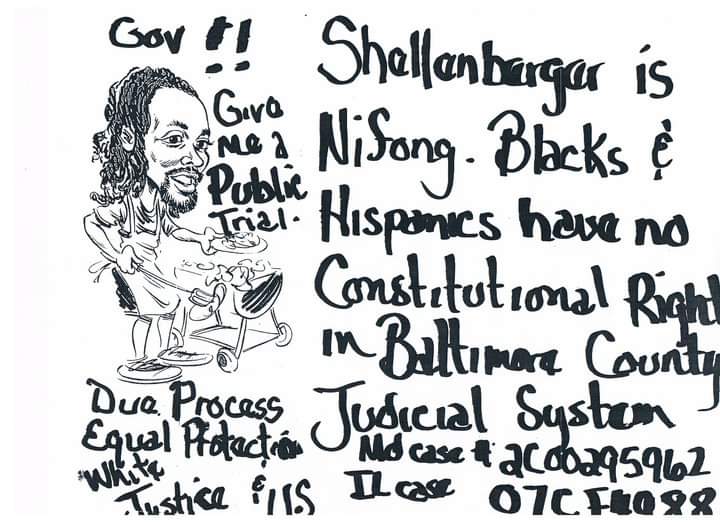 Gov !!
Give
me a
Public
Trial.
Due Process
Equal Protection
White
Justice & U.S
Shellenberger is
Nifong. Blacks &
Hispanics have no
Constitutional Right
in Baltimore County
Judicial System
Md case # 2C00295962
IL case